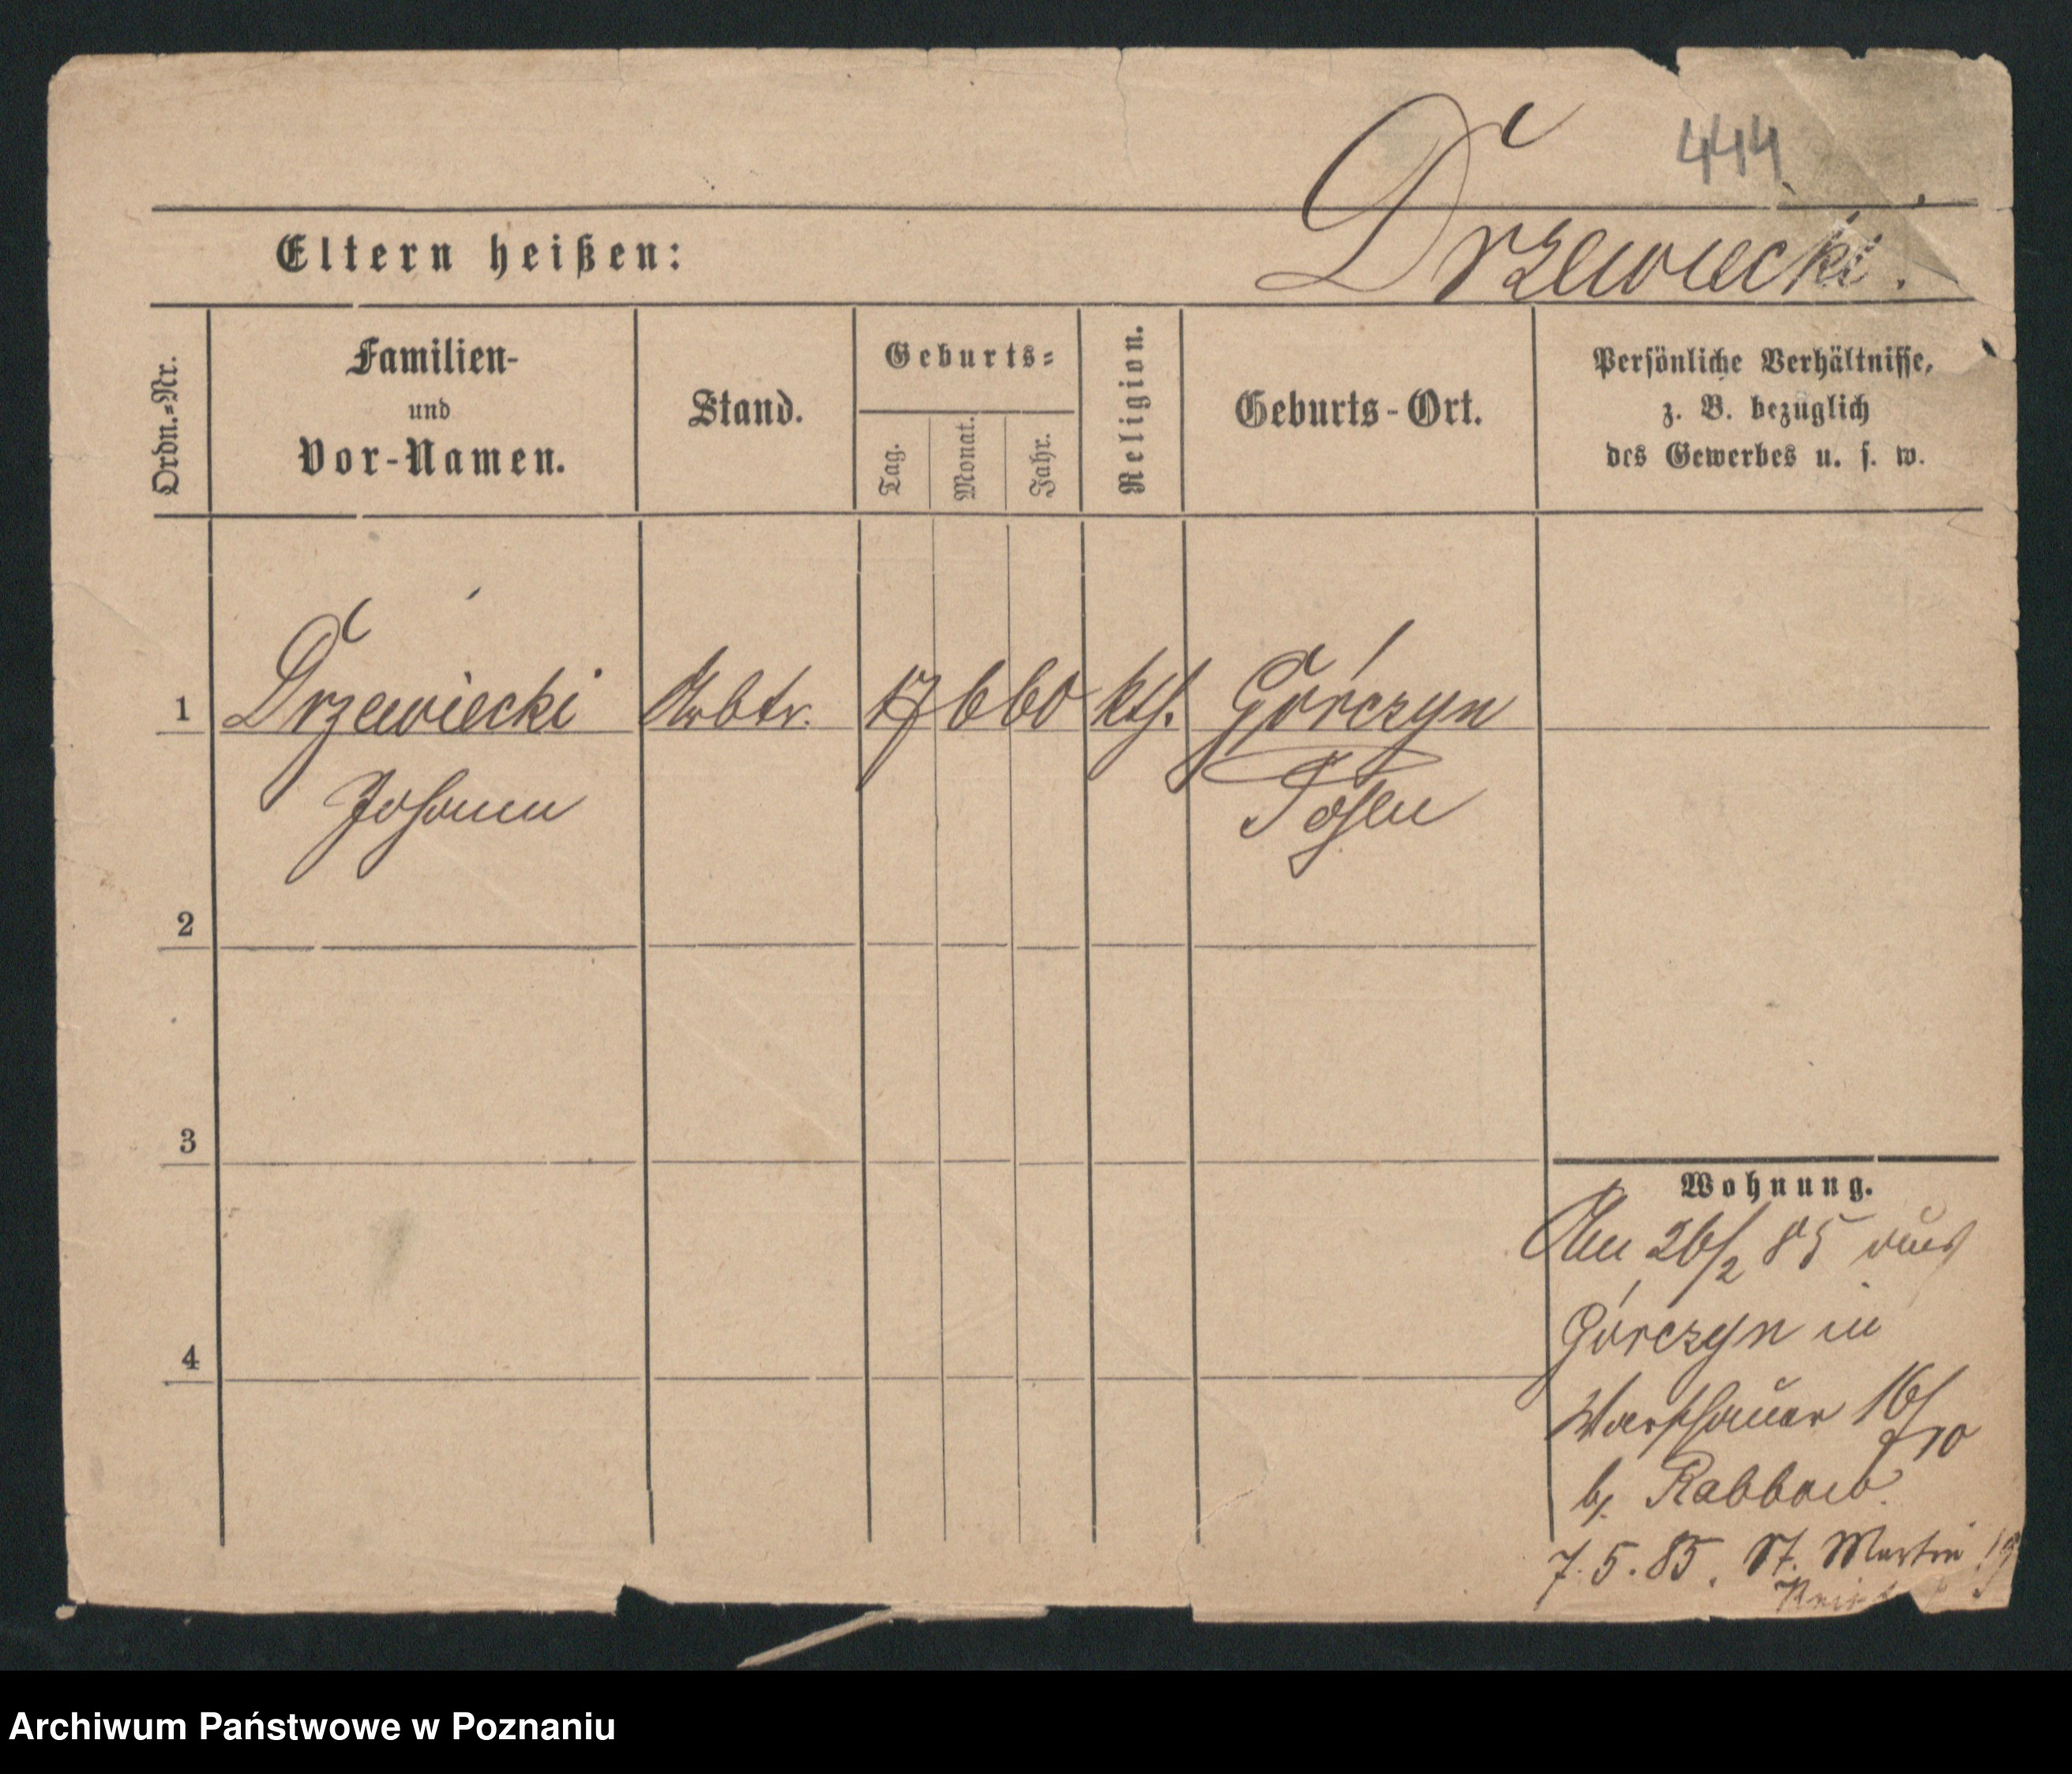 444
Drzewiecki.
Eltern heißen:
Ordn.=Nr.
Familien-
und
Vor-Namen.
Stand.
Geburts=
Tag.
Monat.
Jahr.
Religion.
Geburts-Ort.
Persönliche Verhältnisse,
z. B. bezüglich
des Gewerbes u. s. w.
1 Drzewiecki Arbtr. 17 6 60 kth. Górczyn
Johann Posen
2
3
4
Wohnung.
Am 26/2 85 aus
Górczyn in
Warschauer 16/
b/.
7.5.85. St. Martin
Archiwum Państwowe w Poznaniu